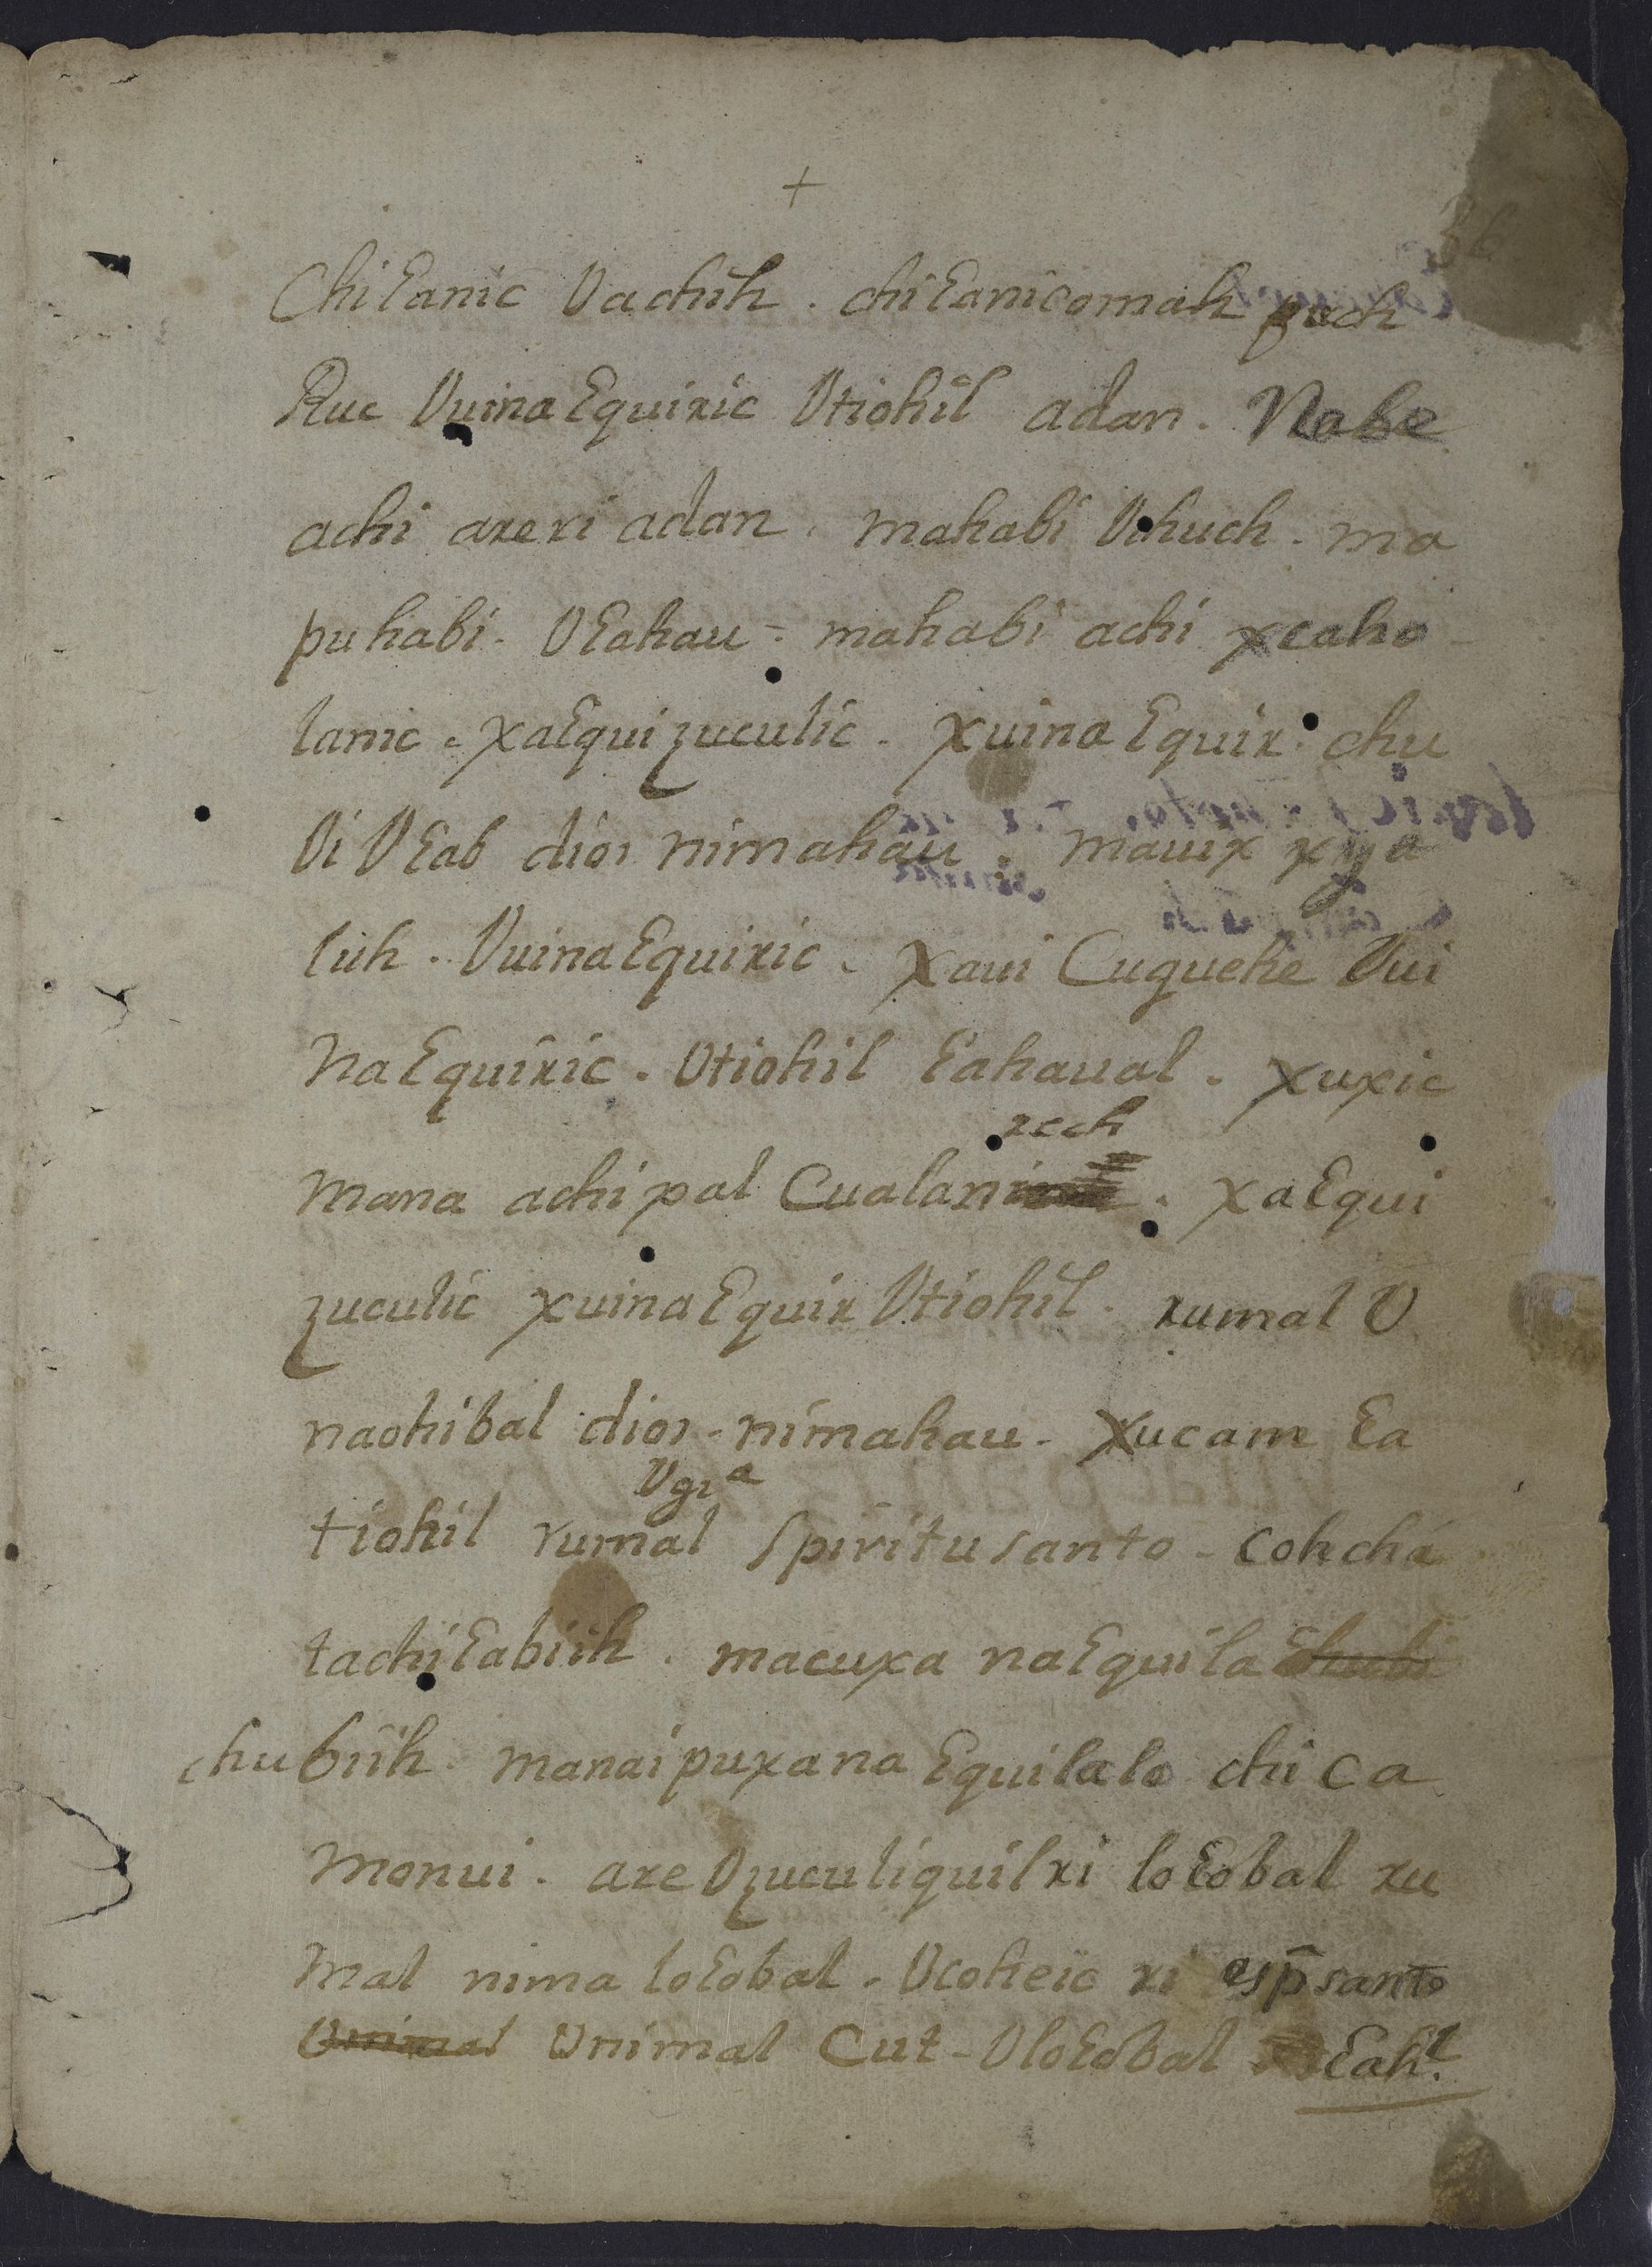 +
36
Chiɛanic Vachih . chiɛanicomah puch
Ruc Vuinaɛquiric Vtiohil adan . Nabe
achi areri adan . mahabi Vchuch . ma
puhabi . Vɛahau - mahabi achi xcaho
lanic . xaɛquizuculic . xuinaɛquir chu
Vi Vɛab dios nimahau . mauix xya
luh . Vuinaɛquiric . xaui Cuquehe Vui
naɛquiric . Vtiohil ɛahaual . xuxic
rech
mana achi pal Cualani . xaɛqui
zuculic xuinaɛquir Vtiohil . rumal V
naohibal dios - nimahau . xucam ɛa
Vgrᵃ
tiohil rumal spiritu santo - cohcha
tachiɛabiih . macuxa naɛquila
chubiih . manaipuxana ɛquilalo chi ca
monui . are Vzuculiquil ri loɛobal ru
mal nima loɛobal . Vcoheic ri esp̄ santo
Vnimal Vnimal Cut - Vloɛobal ɛahˡ.